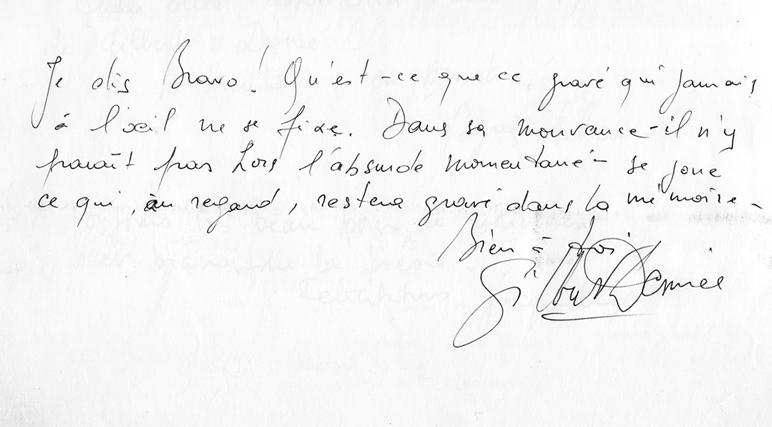 Je dis Bravo! Qu'est-ce que ce gravé qui jamais
à l'œil ne se fixe. Dans sa mouvance - il n'y
paraît pas hors l'absurde momentané - se joue
ce qui, au regard, restera gravé dans la mémoire -
Bien à toi
Gilbert